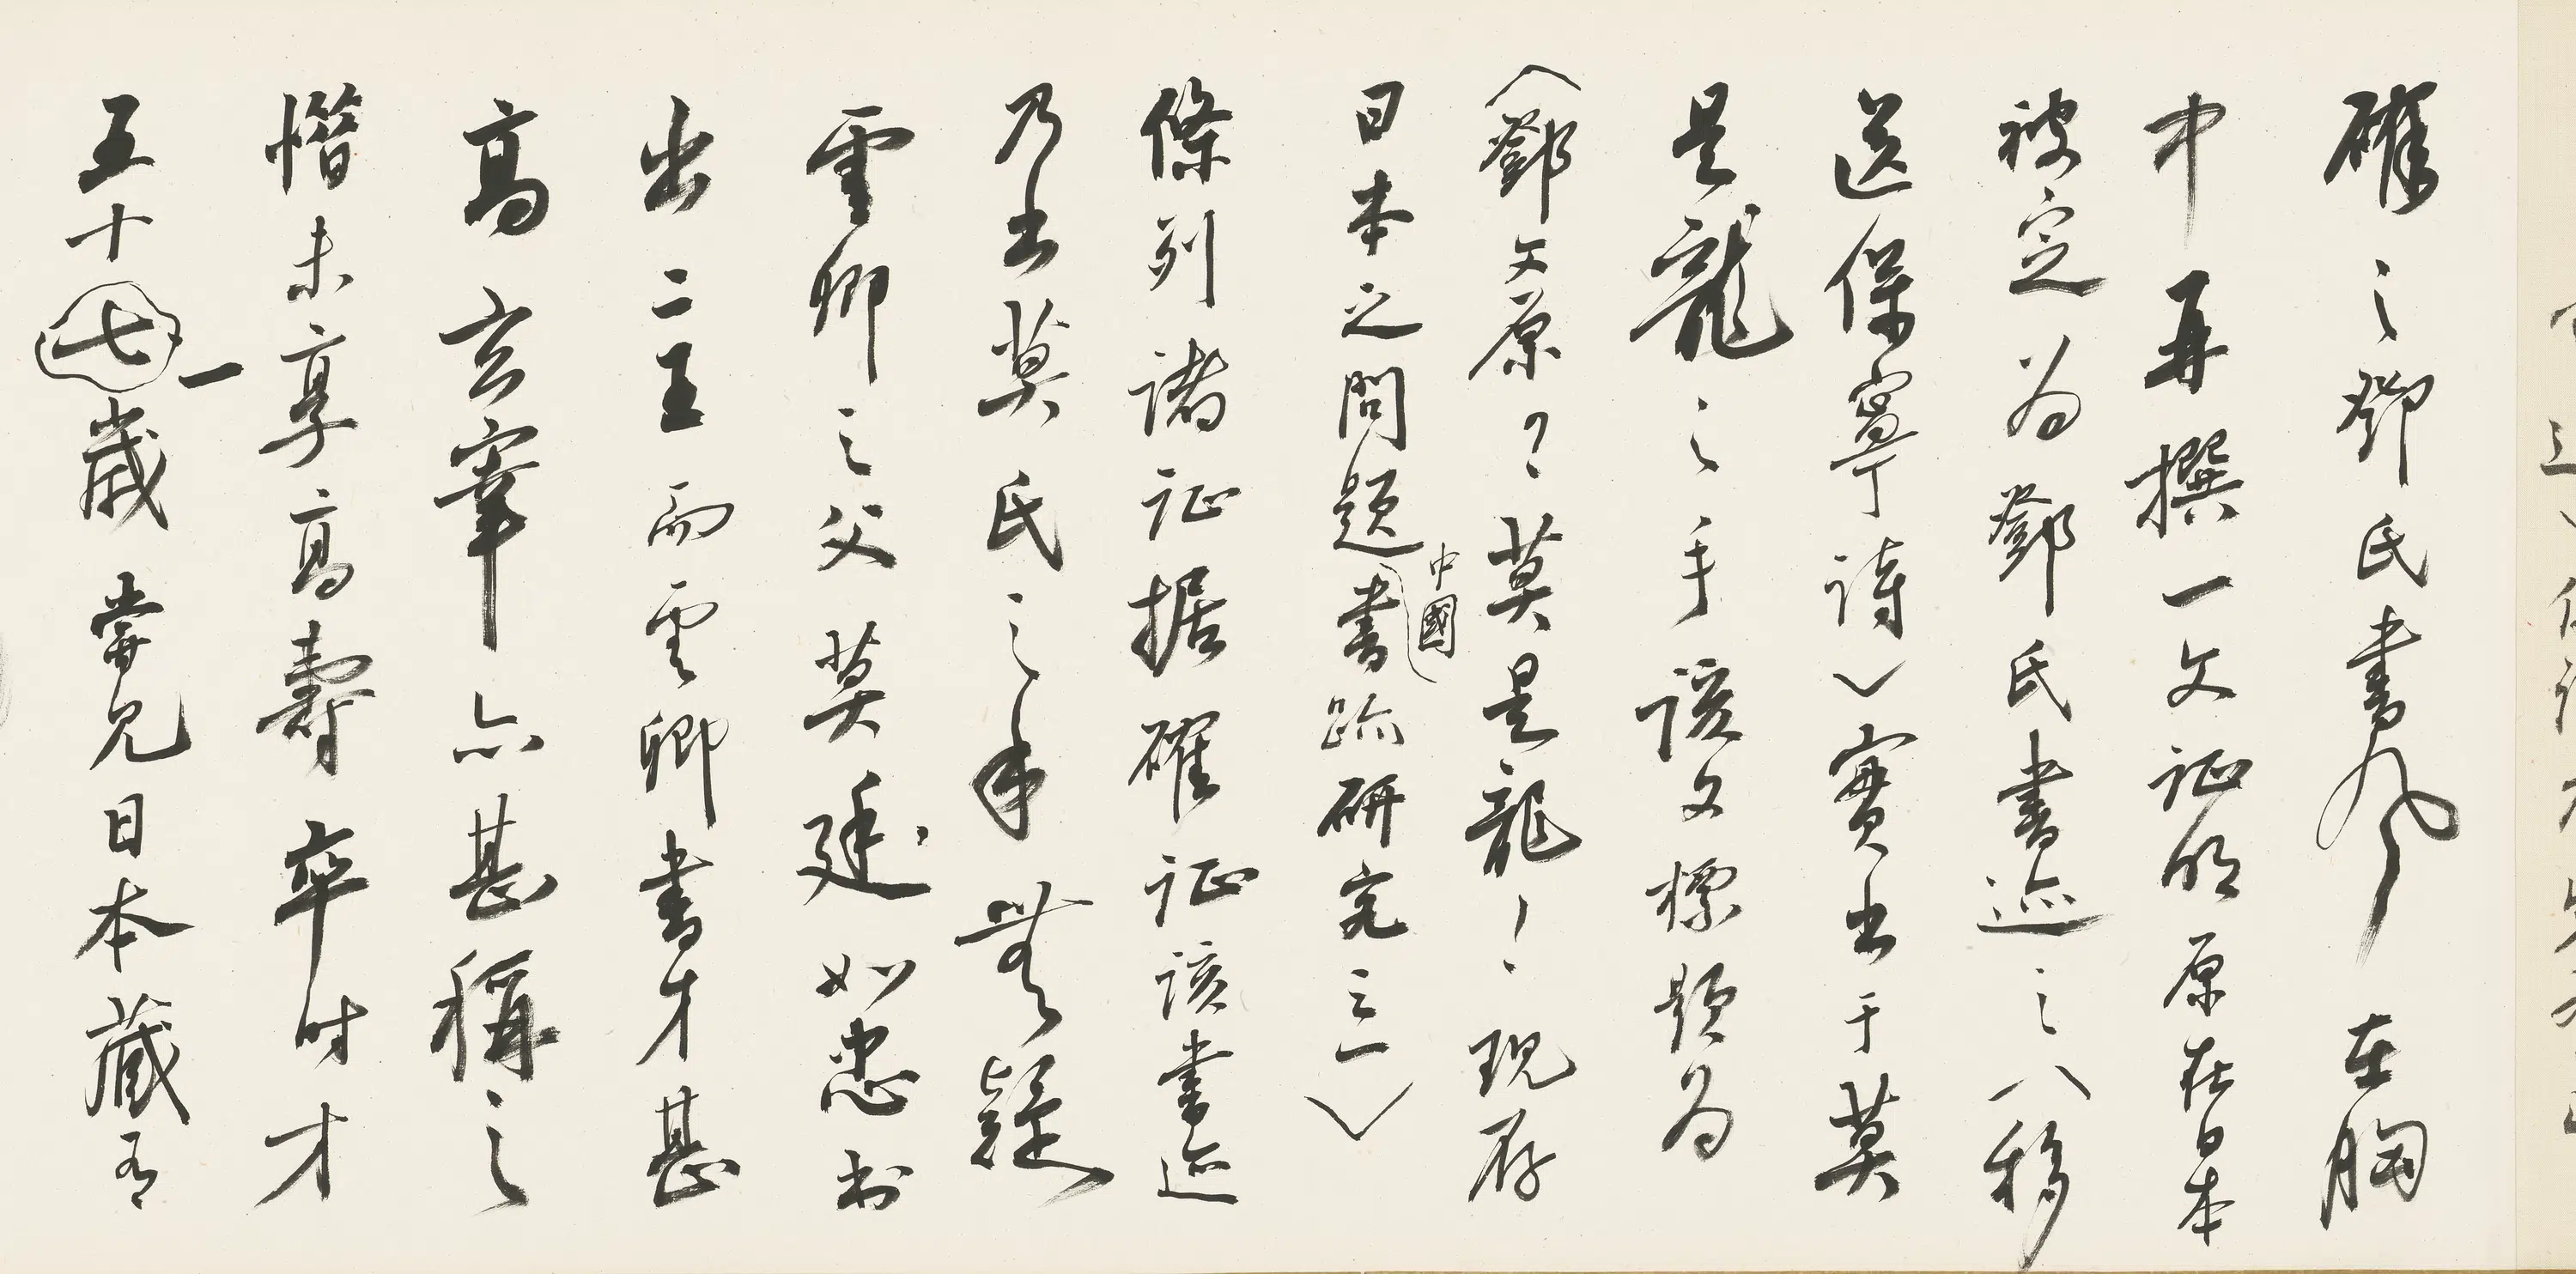 確之鄧氏書風在胸
中再撰一文证明原在日本
被定为鄧氏書迹之八移
送保寧詩）實出于莫
是龍之手該文標題为
（鄧文原？莫是龍！现存
日本之問題中國書跡研究之一）
條列諸证据確证該書迹
乃出莫氏之手無疑
雲卿之父莫廷如忠书
出二王而雲卿書才甚
高玄宰亦甚稱之
惜未享高壽卒时才
五十七一歲嘗見日本藏有